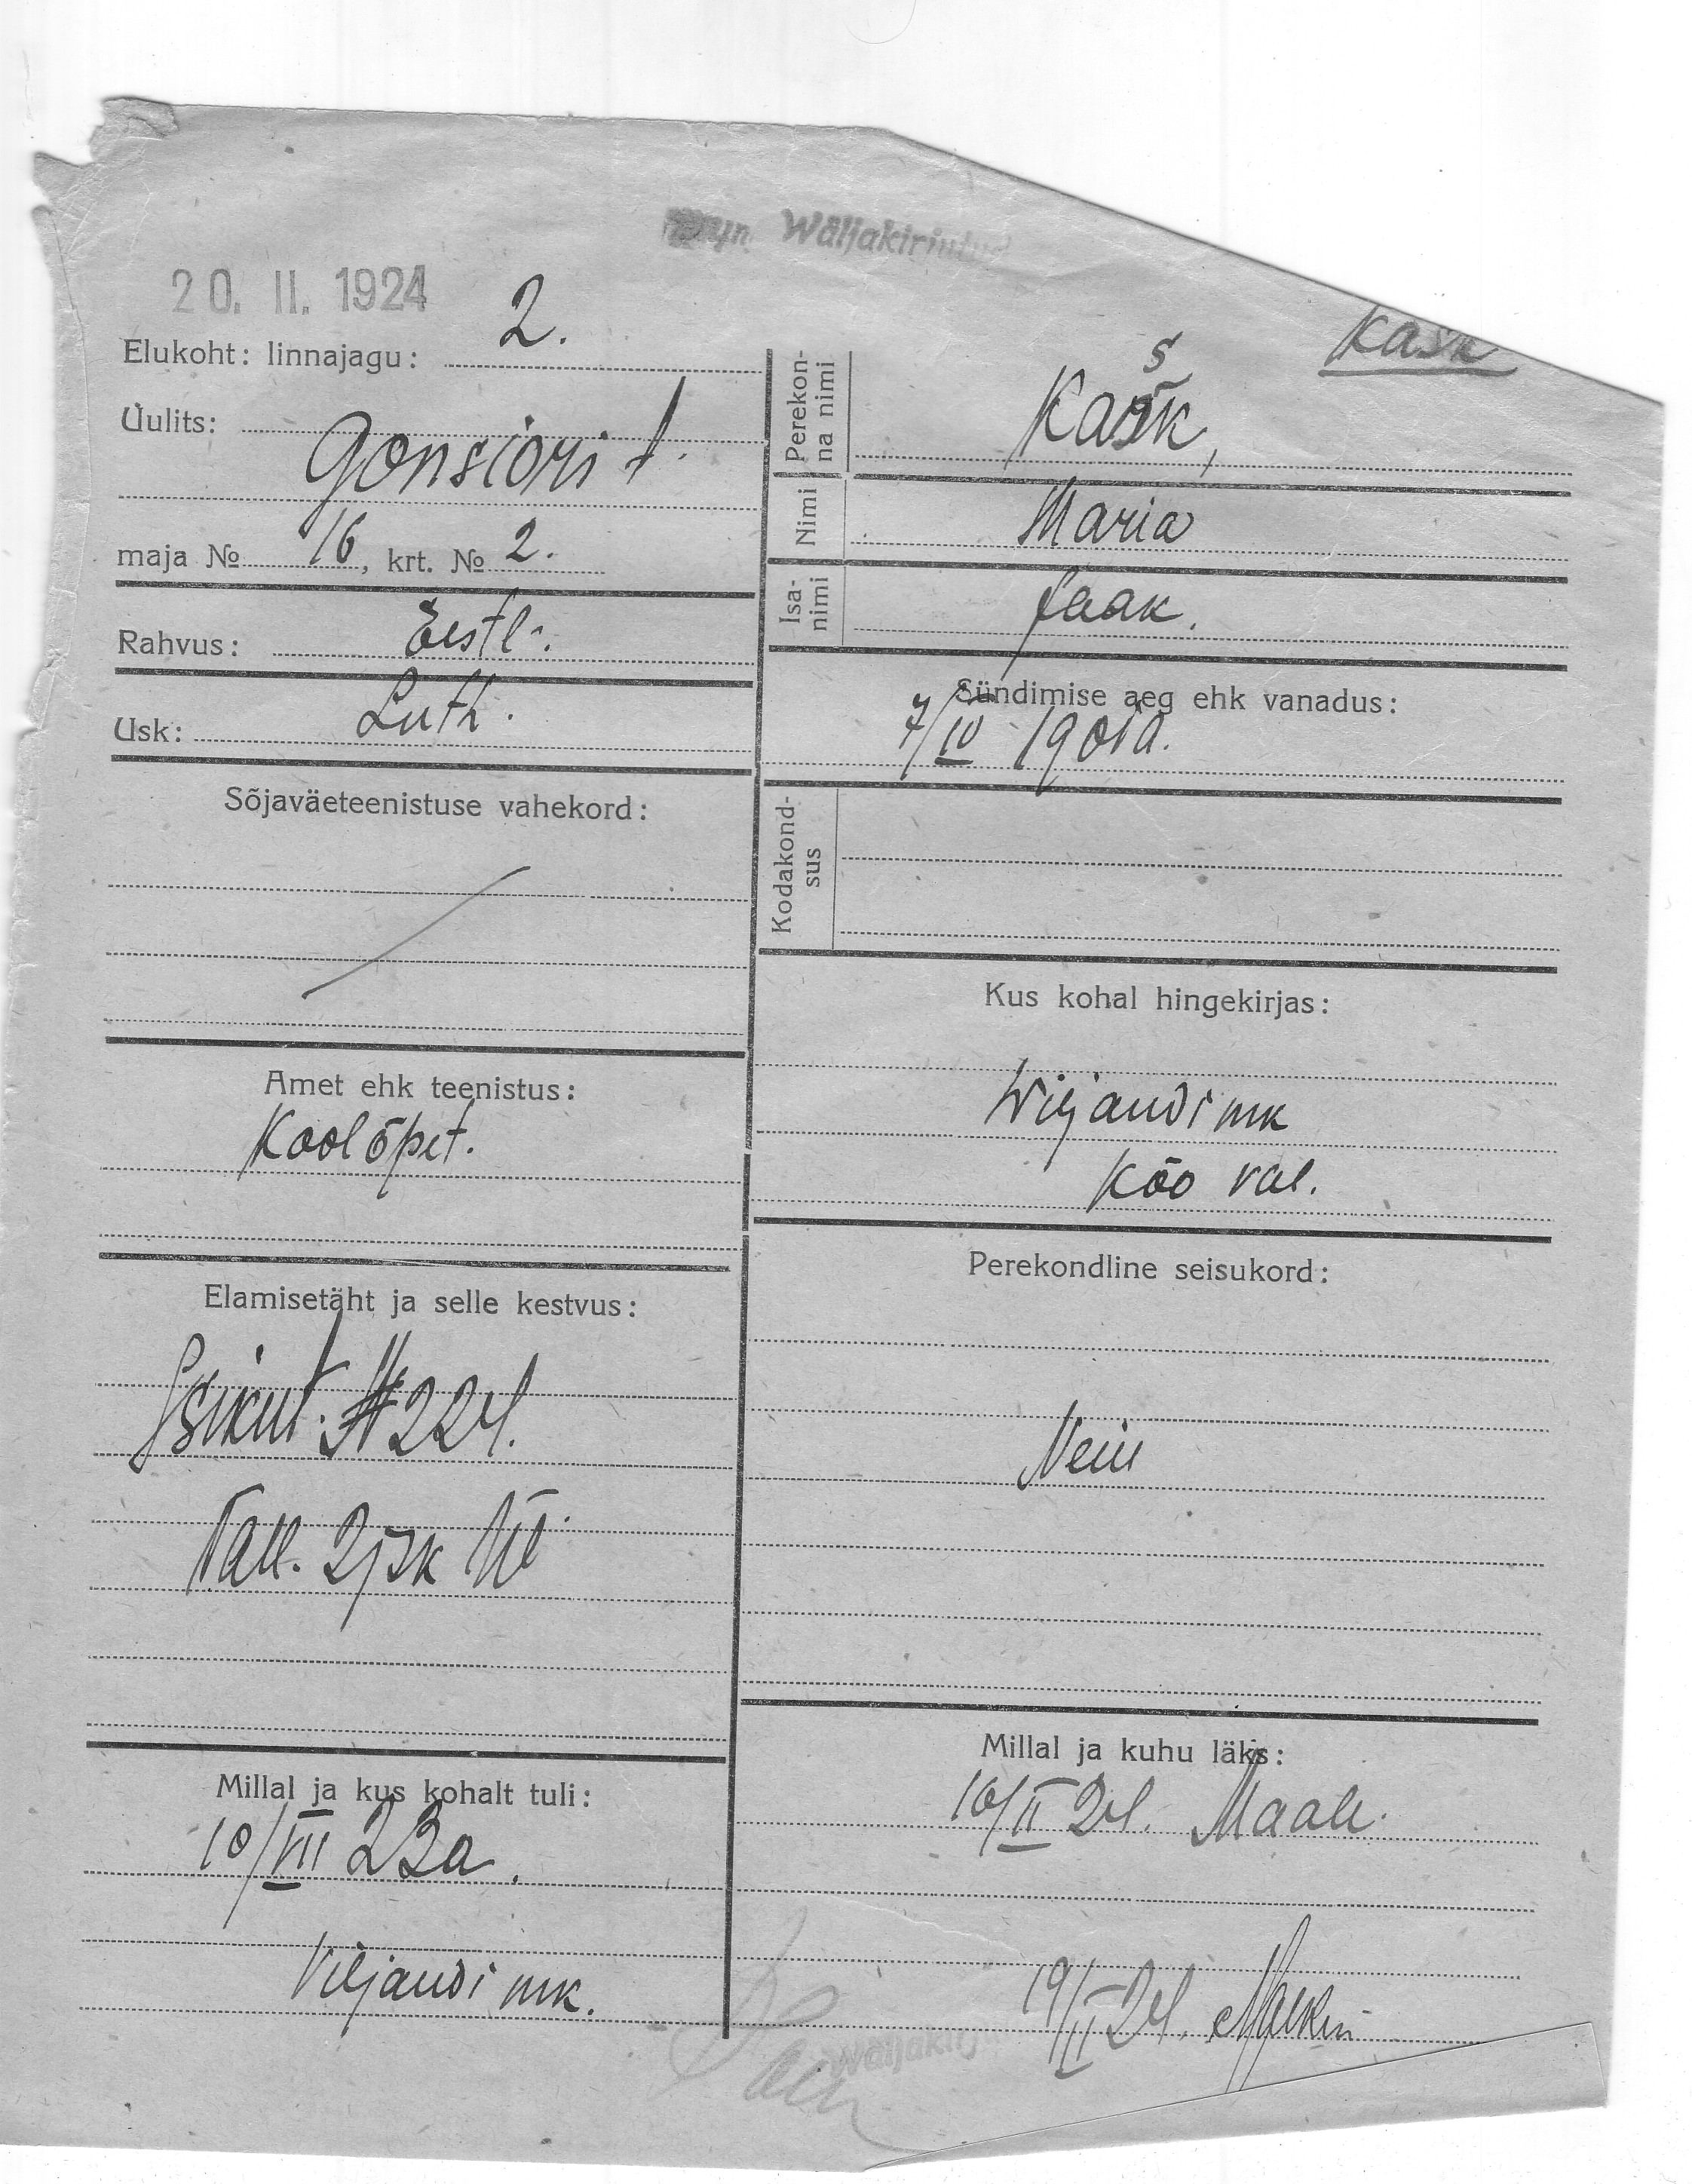 Wäljakirjutud
20. II. 1924
Kask
Elukoht: linnajagu: 2.
Uulits:
Gonsiori t.
maja № 16, krt. № 2.
Rahvus: Eestl.
Usk: Luth.
Sõjaväeteenistuse vahekord:
Amet ehk teenistus:
Koolõpet.
Elamisetäht ja selle kestvus:
Isikut. № 224.
Tall. 2 jsk
Millal ja kus kohalt tuli:
10/VII 23a.
Viljandi mk.
Perekon-
na nimi
s
Kask,
Nimi Maria
Isa-
nimi
Jaak.
Sündimise aeg ehk vanadus:
7/IV 1901a.
Kodakond-
sus
Kus kohal hingekirjas:
Wiljandi mk
Kõo val.
Perekondline seisukord:
Neiu
Millal ja kuhu läks:
16/II 24. Maale.
19/II 24.
Wäljakirj